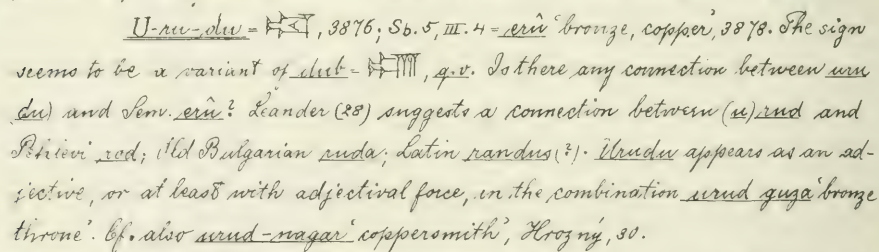 U-ru-du = 𒍏, 3876; Sb. 5, III. 4 = erû 'bronze, copper', 3878. The sign
seems to be a variant of dub = 𒁾, q.v. Is there any connection between uru
du) and Sem. erû? Leander (28) suggests a connection between (u)rud and
Pehlevi rod; Old Bulgarian ruda; Latin randus(?). Urudu appears as an ad-
jective, or at least with adjectival force, in the combination urud guza 'bronze
throne'. Cf. also urud-nagar 'coppersmith', Hrozný, 30.